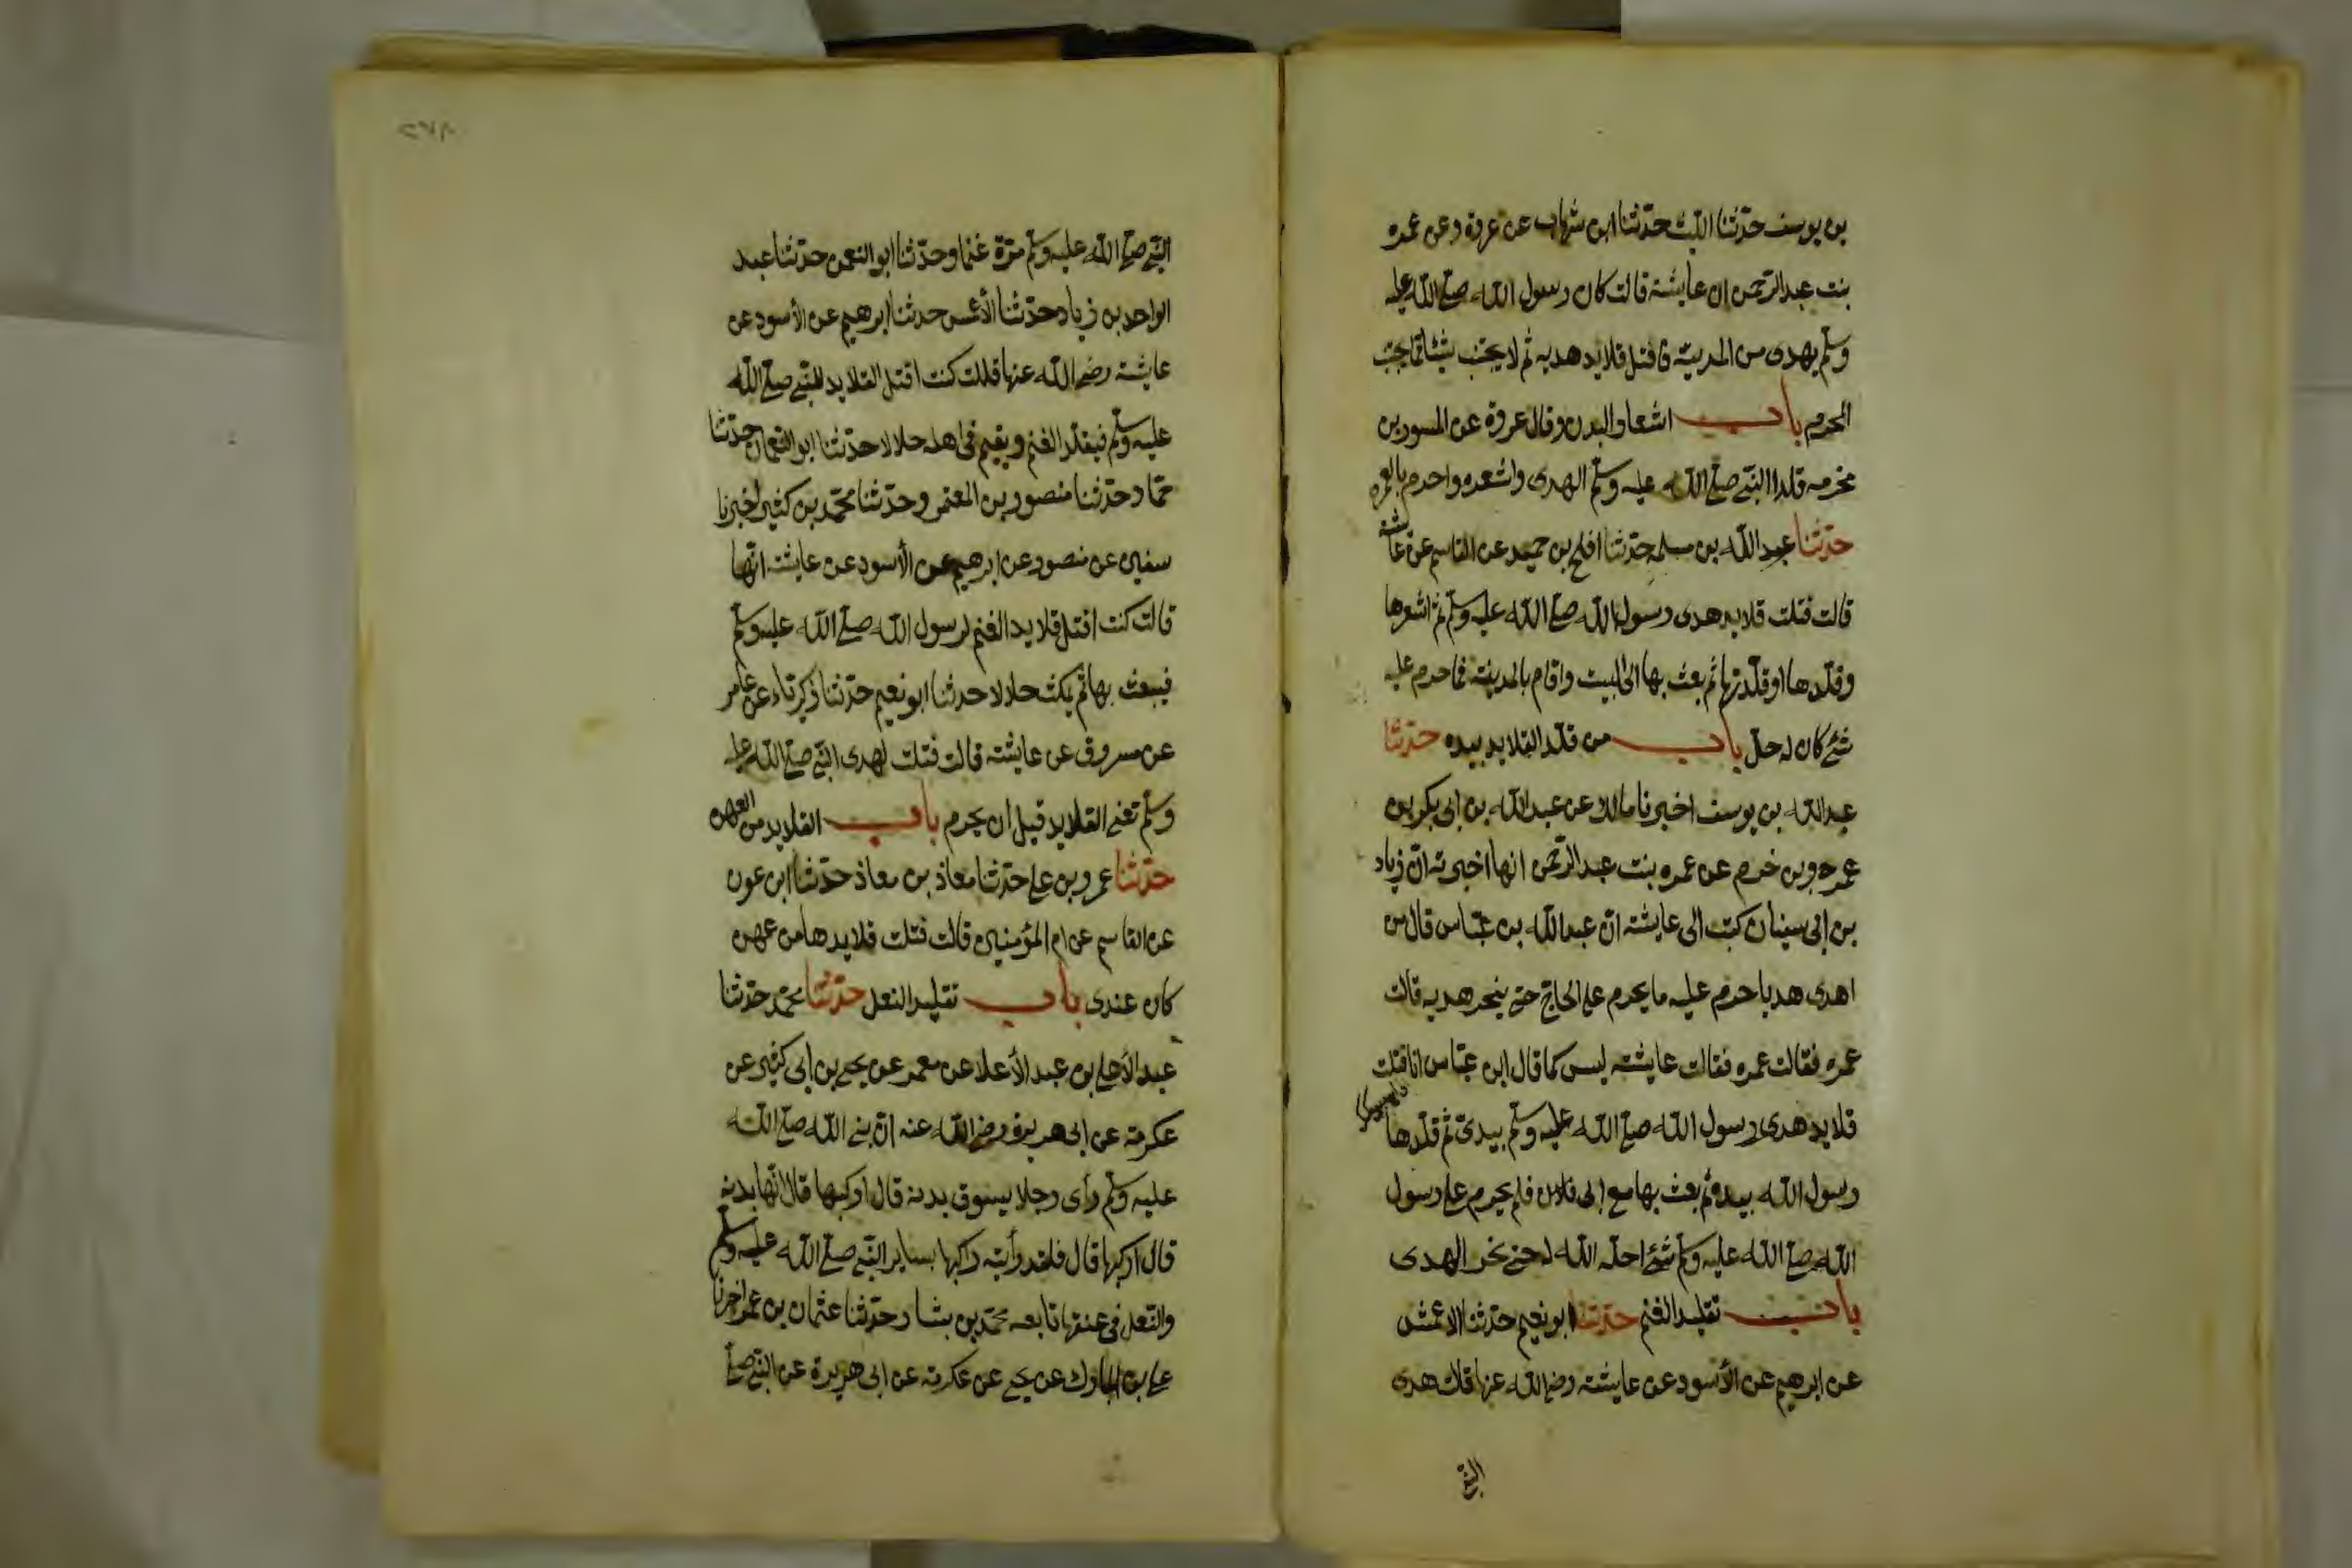 بن يوسف حدّثنا الليث حدّثنا ابن شهاب عن عروة وعن عمره
بنت عبد الرحمن ان عايشة قالت كان رسول الله صلى الله عليه
وسلم يهدى من المدينة فافتل قلايد هديه ثم لا يجتنب شيئا مما يجتنب
المحرم باب اشعار البدن وقال عروة عن المسور بن
مخرمه قلد النبي صلى الله عليه وسلم الهدى واشعره واحرم بالعمره
حدّثنا عبد الله بن مسلمه حدّثنا افلح بن حميد عن القاسم عن عائشة
قالت فتلت قلايد هدى رسول الله صلى الله عليه وسلم ثم اشعرها
وقلّدها او قلّدتها ثم بعث بها الى البيت واقام بالمدينة فما حرم عليه
شئ كان له حلّ باب من قلّد القلايد بيده حدّثنا
عبد الله بن يوسف اخبرنا مالك عن عبد الله بن ابى بكر بن
عمرو بن حزم عن عمره بنت عبد الرحمن انها اخبرته انّ زياد
بن ابى سفيان كتب الى عايشة انّ عبد الله بن عبّاس قال من
اهدى هديا حرم عليه ما يحرم على الحاج حتى ينحر هديه قالت
عمره فقالت عمره فقالت عايشة ليس كما قال ابن عبّاس انا فتلت
قلايد هدى رسول الله صلى الله عليه وسلم بيدىّ ثم قلّدها
رسول الله بيده ثم بعث بها مع ابى فلان فلم يحرم على رسول
الله صلى الله عليه وسلم شئ احله الله له حتى نحر الهدى
باب تقليد الغنم حدّثنا ابو نعيم حدّثنا الاعمش
عن ابرهيم عن الأسود عن عايشة رضى الله عنها قالت هدى
النبي
٢٧٨
النبي صلى الله عليه وسلم مرّة غنما وحدّثنا ابو النعمن حدّثنا عبد
الواحد بن زياد حدّثنا الأعمش حدثنا ابرهيم عن الأسود عن
عايشة رضى الله عنها قالت كنت افتل القلايد للنبي صلى الله
عليه وسلم فيقلّد الغنم ويقيم فى اهله حلالا حدّثنا ابو النعمان حدّثنا
حمّاد حدّثنا منصور بن المعتمر وحدّثنا محمّد بن كثير اخبرنا
سفين عن منصور عن ابرهيم عن الأسود عن عايشة انّها
قالت كنت افتل قلايد الغنم لرسول الله صلى الله عليه وسلم
فيبعث بها ثم يمكث حلالا حدثنا ابو نعيم حدّثنا زكريّاء عن عامر
عن مسروق عن عايشة قالت فتلت لهدى النبي صلى الله عليه
وسلم تعنى القلايد قبل ان يحرم باب القلايد من العهن
حدّثنا عمرو بن على حدّثنا معاذ بن معاذ حدّثنا ابن عون
عن القاسم عن ام المؤمنين قالت فتلت قلايدها من عهن
كان عندى باب تقليد النعل حدّثنا محمّد حدّثنا
عبد الأعلى بن عبد الأعلا عن معمر عن يحيى بن ابى كثير عن
عكرمة عن ابى هريرة رضى الله عنه انّ نبى الله صلى الله
عليه وسلم رأى رجلا يسوق بدنه قال اركبها قال انّها بدنه
قال اركبها قال فلقد رأيته راكبها يساير النبي صلى الله عليه وسلم
والنّعل فى عنقها تابعه محمّد بن بشار حدّثنا عثمان بن عمر اخبرنا
على بن المبارك عن يحيى عن عكرمة عن ابى هريرة عن النبي صلى